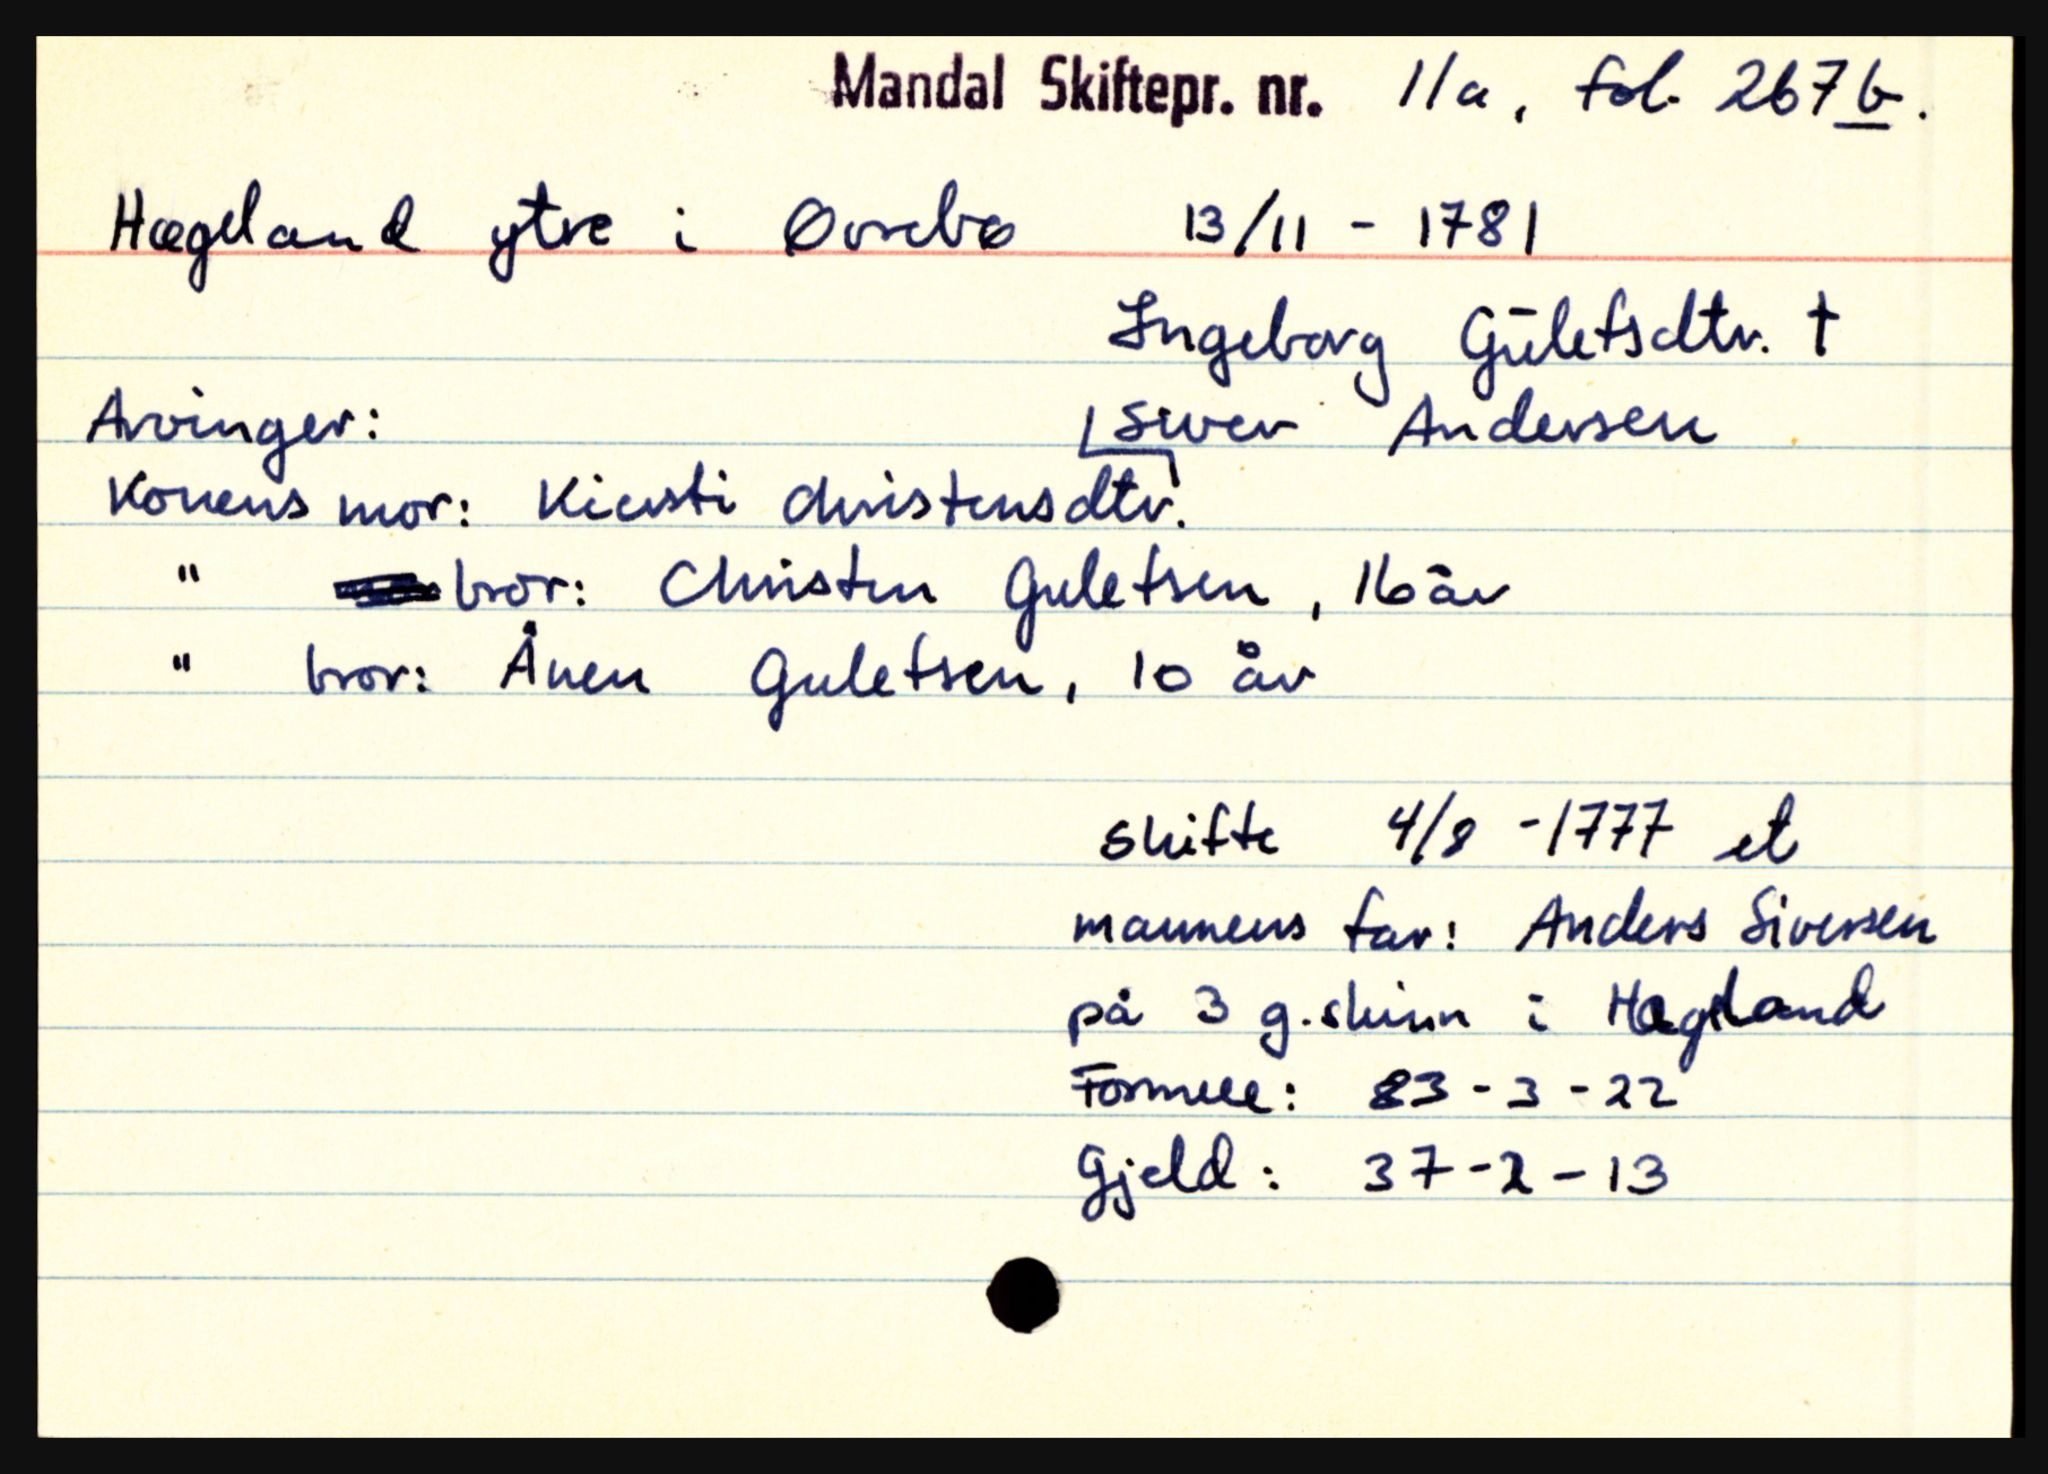 Mandal Skiftepr. nr. 11a, fol. 267b.
Hægeland ytre i Øvrebø 13/11 - 1781
Ingeborg Gūlefsdtr. †
Arvinger: Siver Andersen
Konens mor: Kiersti Christensdtr.
" bror: Christen Gulefsen, 16 år
" bror: Ånen Gulefsen, 10 år
skifte 4/8 - 1777 et
mannens far: Anders Siversen
på 3 g.skinn i Hægeland
Formue: 83 - 3 - 22
Gjeld: 37 - 2 - 13